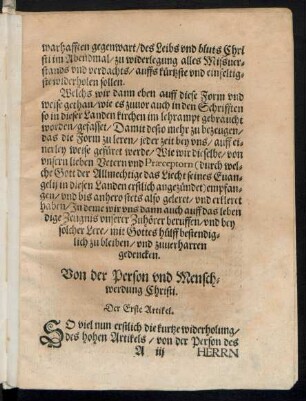 warhafften gegenwart/des Leibs vnd bluts Chri
sti im Abendmal/zu widerlegung alles Missuer-
stands vnd verdachts/auffs kürtzste vnd einfeltig-
ste widerholen sollen.
Welchs wir dann eben auff diese Form vnd
weise gethan/wie es zuuor auch in den Schrifften
so in dieser Landen kirchen im lehrampt gebraucht
worden/gefasset/Damit desto mehr zu bezeugen/
das die Form zu leren/jeder zeit bey vns/auff ei-
nerley weise gefüret werde/Wie wir dieselbe/von
vnsern lieben Vetern vnd Præceptorn (durch wel-
che Gott der Allmechtige das Liecht seines Euan-
gelij in diesen Landen erstlich angezündet) empfan-
gen/vnd bis anhero stets also geleret/vnd erkleret
haben/In deme wir vns dann auch auff das leben
dige Zeugnis vnserer Zuhörer beruffen/vnd bey
solcher Lere/mit Gottes hülff bestendig-
lich zu bleiben/vnd zuuerharren
gedencken.
Von der Person vnd Mensch-
werdung Christi.
Der Erste Artikel.
SO viel nun erstlich die kurtze widerholung/
des hohen Artikels/von der Person des
A iij HERRN